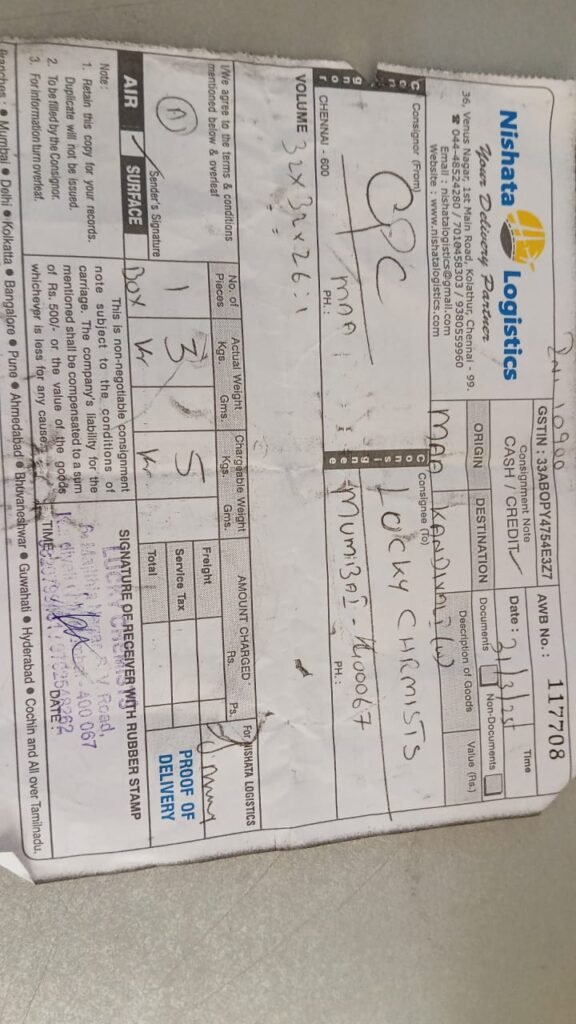 Inv. 10900
Nishata Logistics
Your Delivery Partner
36, Venus Nagar, 1st Main Road, Kolathur, Chennai - 99.
☎ 044-48524280 / 7010458303 / 9380559960
Email : nishatalogistics@gmail.com
Website : www.nishatalogistics.com
GSTIN : 33ABOPY4754E3Z7
Consignment Note
CASH / CREDIT ✓
AWB No. : 117708
Date : 31/3/25
Time
ORIGIN
DESTINATION
Documents
Non-Documents
MAA
KANDIVALI (W)
Description of Goods
Value (Rs.)
Consignor
Consignor (From)
CPC
MAA
CHENNAI - 600
PH.:
Consignee
Consignee (To)
LUCKY CHEMISTS
MUMBAI - 400067
PH.:
VOLUME 32x32x26:1
I/We agree to the terms & conditions
mentioned below & overleaf
Sender's Signature
No. of
Pieces
Actual Weight
Kgs. Gms.
Chargeable Weight
Kgs. Gms.
AMOUNT CHARGED
Rs. Ps.
For NISHATA LOGISTICS
1
Box
3
Kr
5
Kr
Freight
Service Tax
Total
PROOF OF
DELIVERY
AIR
SURFACE
Note:
1. Retain this copy for your records.
Duplicate will not be issued.
2. To be filled by the Consignor.
3. For information turn overleaf.
This is non-negotiable consignment
note subject to the conditions of
carriage. The company's liability for the
mentioned shall be compensated to a sum
of Rs. 500/- or the value of the goods
whichever is less for any cause
SIGNATURE OF RECEIVER WITH RUBBER STAMP
LUCKY CHEMISTS
S V Road,
400 067
TIME:
DATE:
Branches : ● Mumbai ● Delhi ● Kolkatta ● Bangalore ● Pune ● Ahmedabad ● Bhuvaneshwar ● Guwahati ● Hyderabad ● Cochin and All over Tamilnadu.